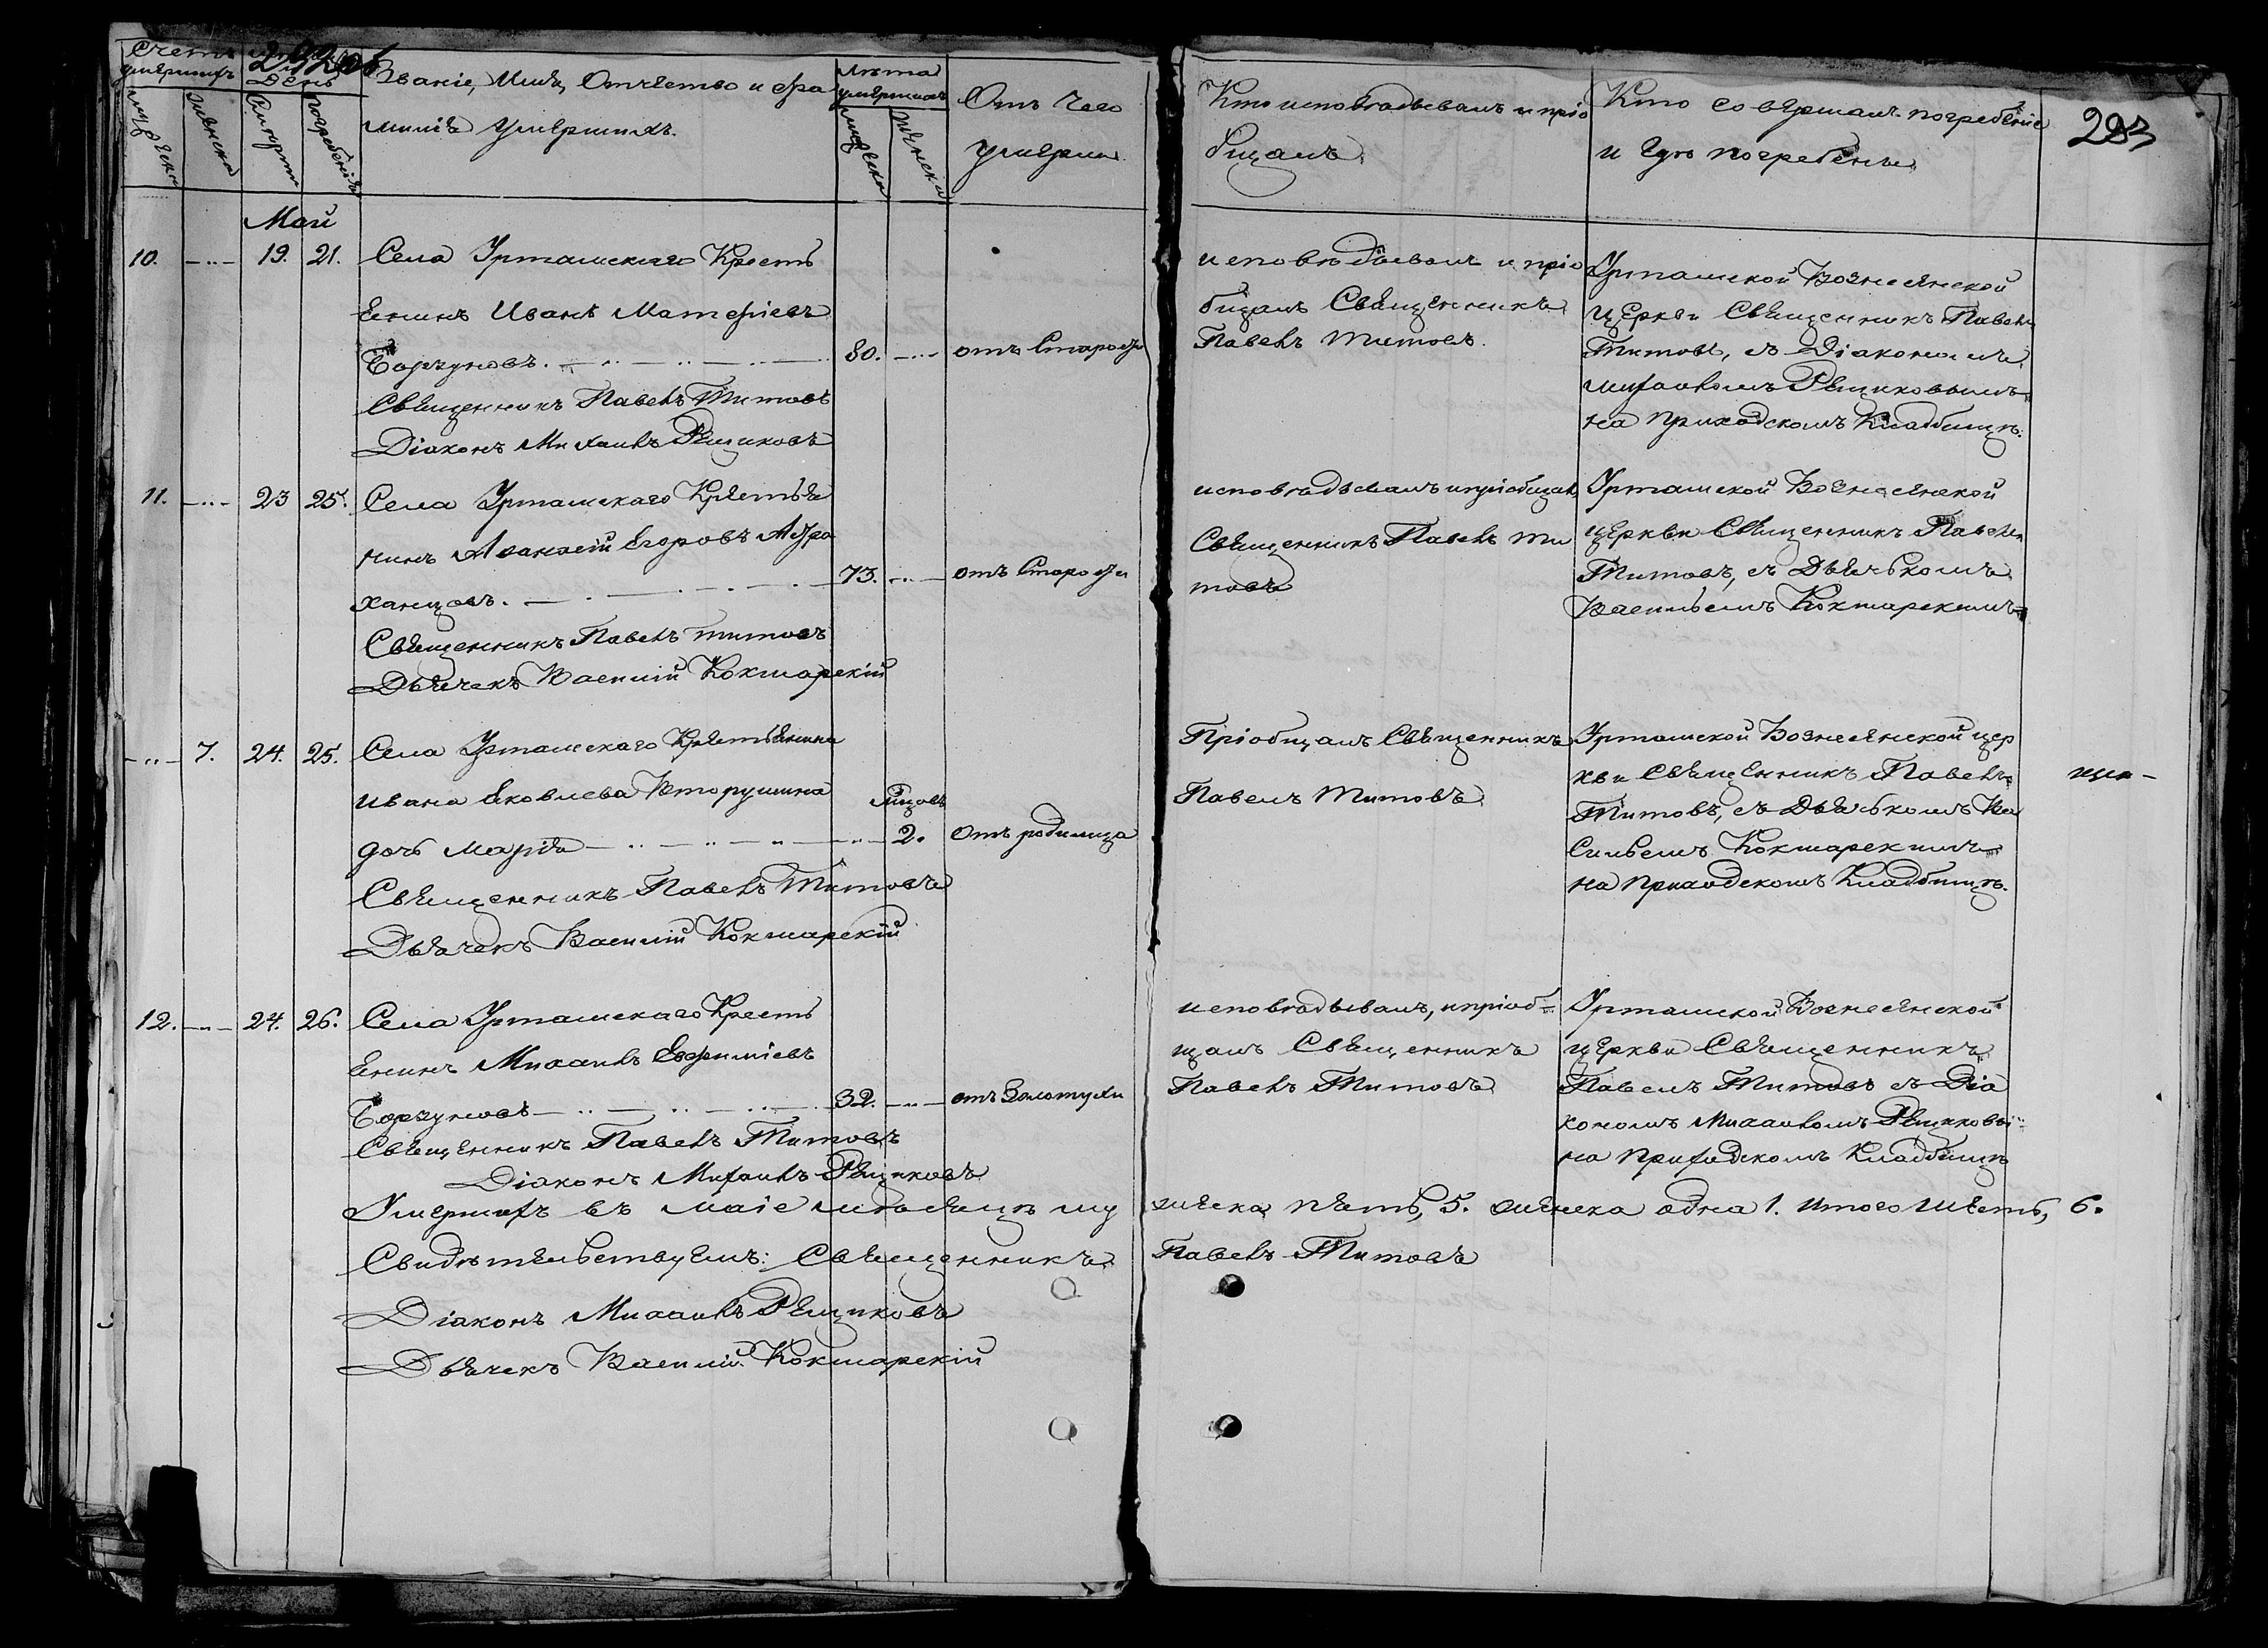 Счетъ умершихъ
День
Званіе, Имя, Отчество и фа
милія умершихъ.
Лѣта умершихъ
Отъ чего
умерли
Кто исповѣдывалъ и пріо
бщалъ
Кто совершалъ погребеніе
и гдѣ погребены
283
мужеска
женска
Смерти
погребенія
мужеска
женска
Май
10.
19.
21.
Села Урташскаго Кресть
енинъ Иванъ Матефіевъ
Борзуновъ.
80.
отъ Старости
Священникъ Павелъ Титовъ
Діаконъ Михаилъ Рещиковъ
исповѣдывалъ и пріо
бщалъ Священникъ
Павелъ Титовъ.
Урташской Вознесенской
церкви Священникъ Павелъ
Титовъ, съ Діакономъ
Михаиломъ Рещиковымъ
на приходскомъ Кладбищѣ.
11.
23
25.
Села Урташскаго Крестья
нинъ Афанасій Егоровъ Астра
ханцовъ.
73.
отъ Старости
Священникъ Павелъ Титовъ
Дьячекъ Василій Кокшарскій
исповѣдывалъ и пріобщалъ
Священникъ Павелъ Ти
товъ
Урташской Вознесенской
церкви Священникъ Павелъ
Титовъ, съ Дьячькомъ
Васильемъ Кокшарскимъ
7.
24.
25.
Села Урташскаго Крестьенина
Ивана Яковлева Вторушина
дочь Марія
2.
отъ родимца
Священникъ Павелъ Титовъ
Дьячекъ Василій Кокшарскій
Пріобщалъ Священникъ
Павелъ Титовъ
Урташской Вознесенской цер
кви Священникъ Павелъ
Титовъ, съ Дьячькомъ Ва
сильемъ Кокшарскимъ
на приходскомъ Кладбищѣ.
12.
24.
26.
Села Урташскаго Кресть
енинъ Михаилъ Евфиміевъ
Борзуновъ
32.
отъ Золотухи
Священникъ Павелъ Титовъ
Діаконъ Михаилъ Рещиковъ
исповѣдывалъ, и пріоб-
щалъ Священникъ
Павелъ Титовъ
Урташской Вознесенской
церкви Священникъ
Павелъ Титовъ съ Діа
кономъ Михаиломъ Рещиковы
на приходскомъ Кладбищѣ
Умершихъ въ маіе мѣсяцѣ му
жеска пять, 5. женска одна 1. итого шесть, 6.
Свидѣтельствуемъ: Священникъ
Павелъ Титовъ
Діаконъ Михаилъ Рещиковъ
Дьячекъ Василій Кокшарскій